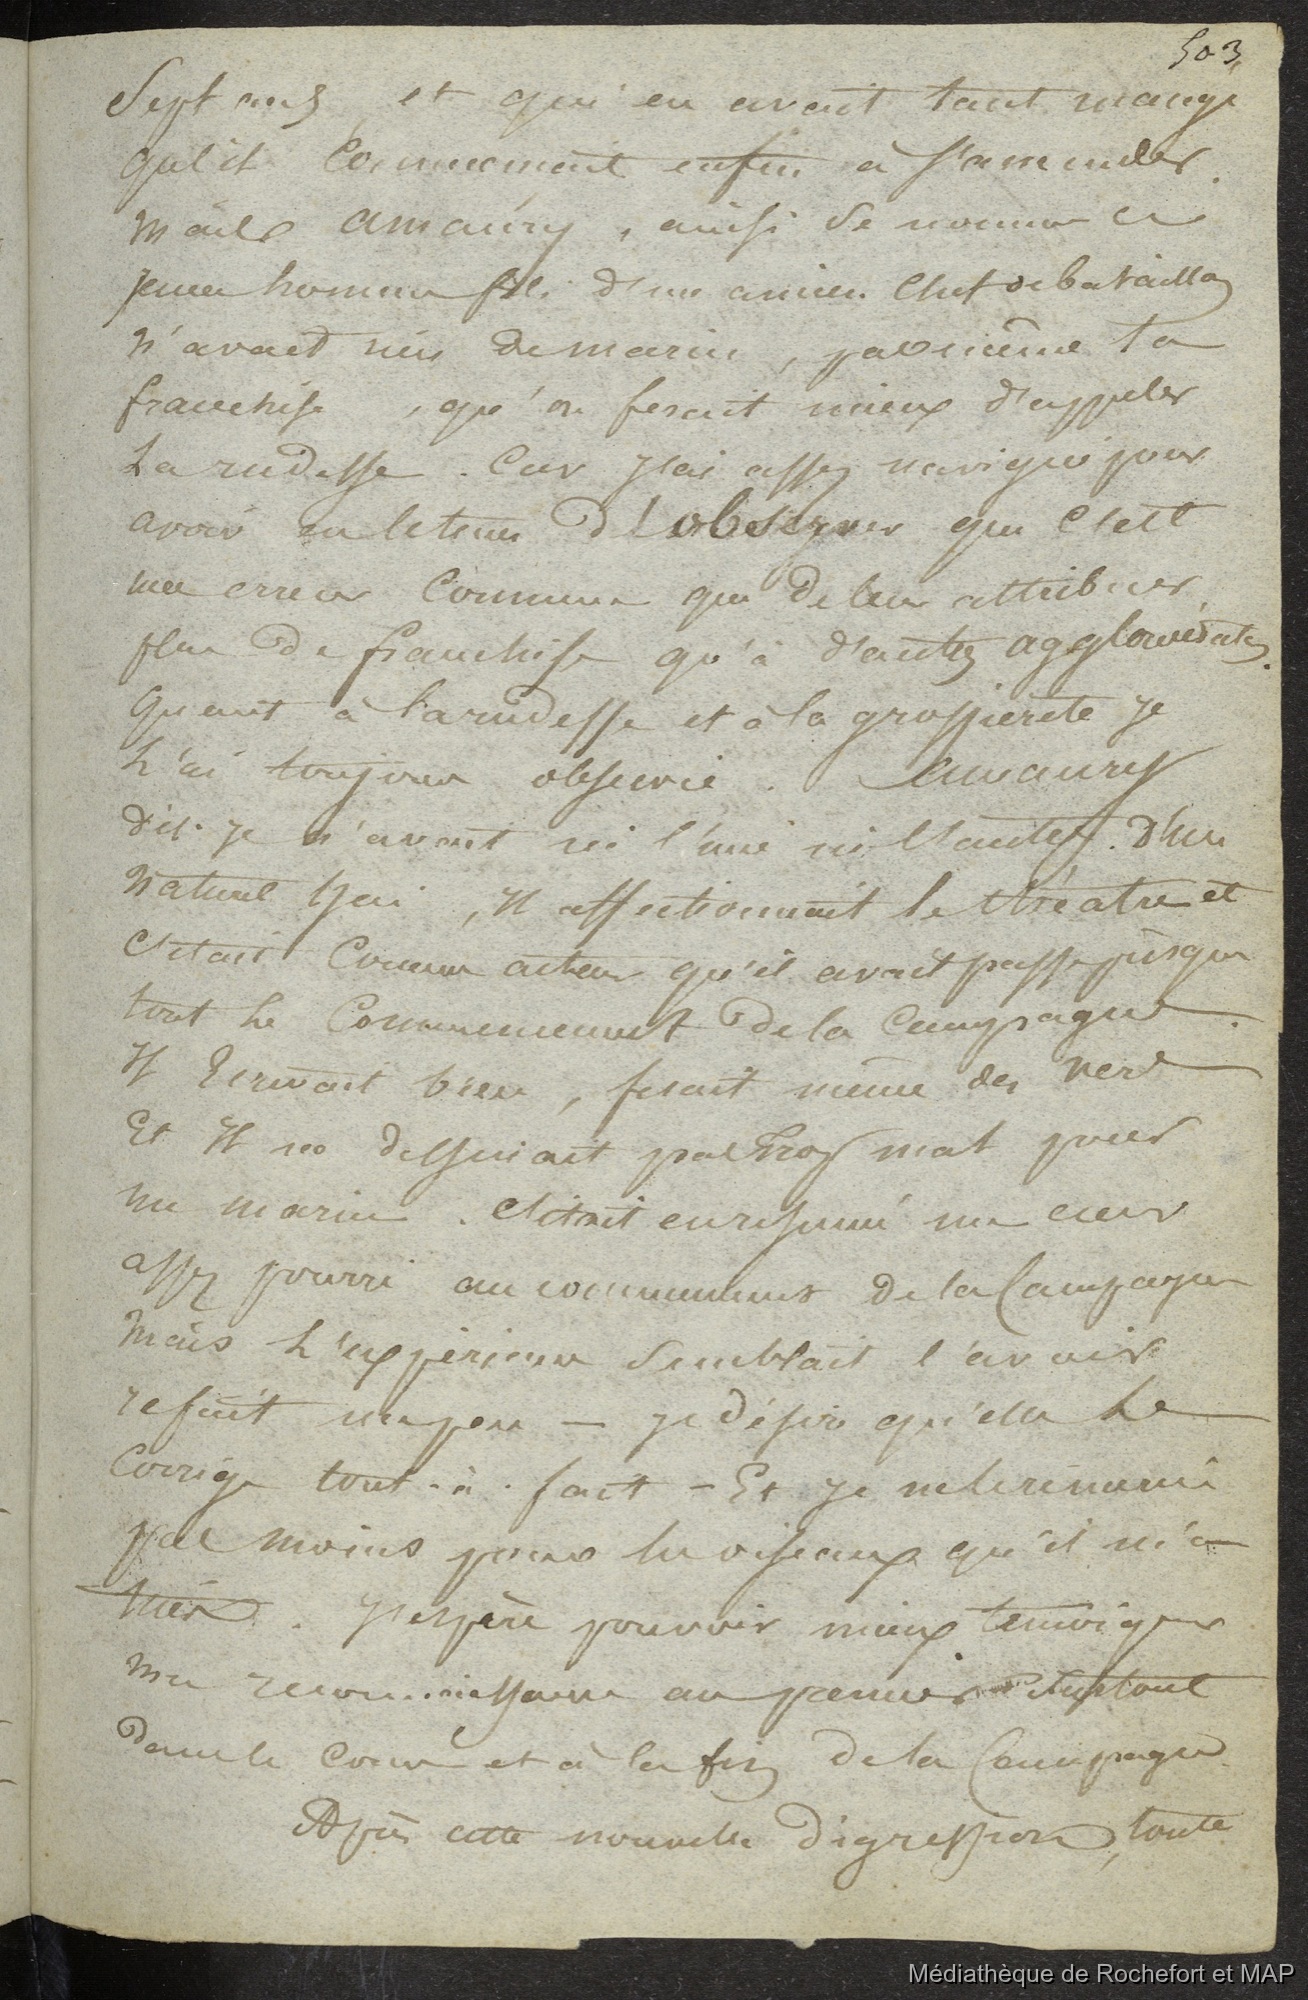 503
Sept ans, et qui en avait tant mangé
qu'il commencait enfin à s'amender.
Mais Amaury, ainsi se nomme ce
jeune homme fils d'un ancien chef de bataillon
n'avait rien de marin, pas même la
franchise, qu'on ferait mieux d'appeler
la rudesse. Car j'ai assez navigué pour
avoir eu le tems d'observer que c'est
une erreur commune que de leur attribuer
plus de franchise qu'à d'autres agglomérats.
Quant à la rudesse et à la grossiereté je
l'ai toujours observée. Amaury
dis-je n'avait ni l'une ni l'autre. D'un
naturel gai, il affectionnait le théatre et
c'était comme acteur qu'il avait passé presque
tout le commencement de la Campagne.
Il Ecrivait bien, fesait même des vers
Et il ne dessinait pas trop mal pour
un marin. C'était en resumé un cœur
assez pourri au commencement de la Campagne
Mais l'expérience semblait l'avoir
refait un peu — je désire qu'elle le
Corrige tout-à-fait — Et je ne
pas moins pour les oiseaux qu'il m'a
tués. J'espère pouvoir mieux temoigner
ma reconnaissance au premier surtout
dans le cours et à la fin de la Campagne.
Après cette nouvelle digression, toute
Médiathèque de Rochefort et MAP